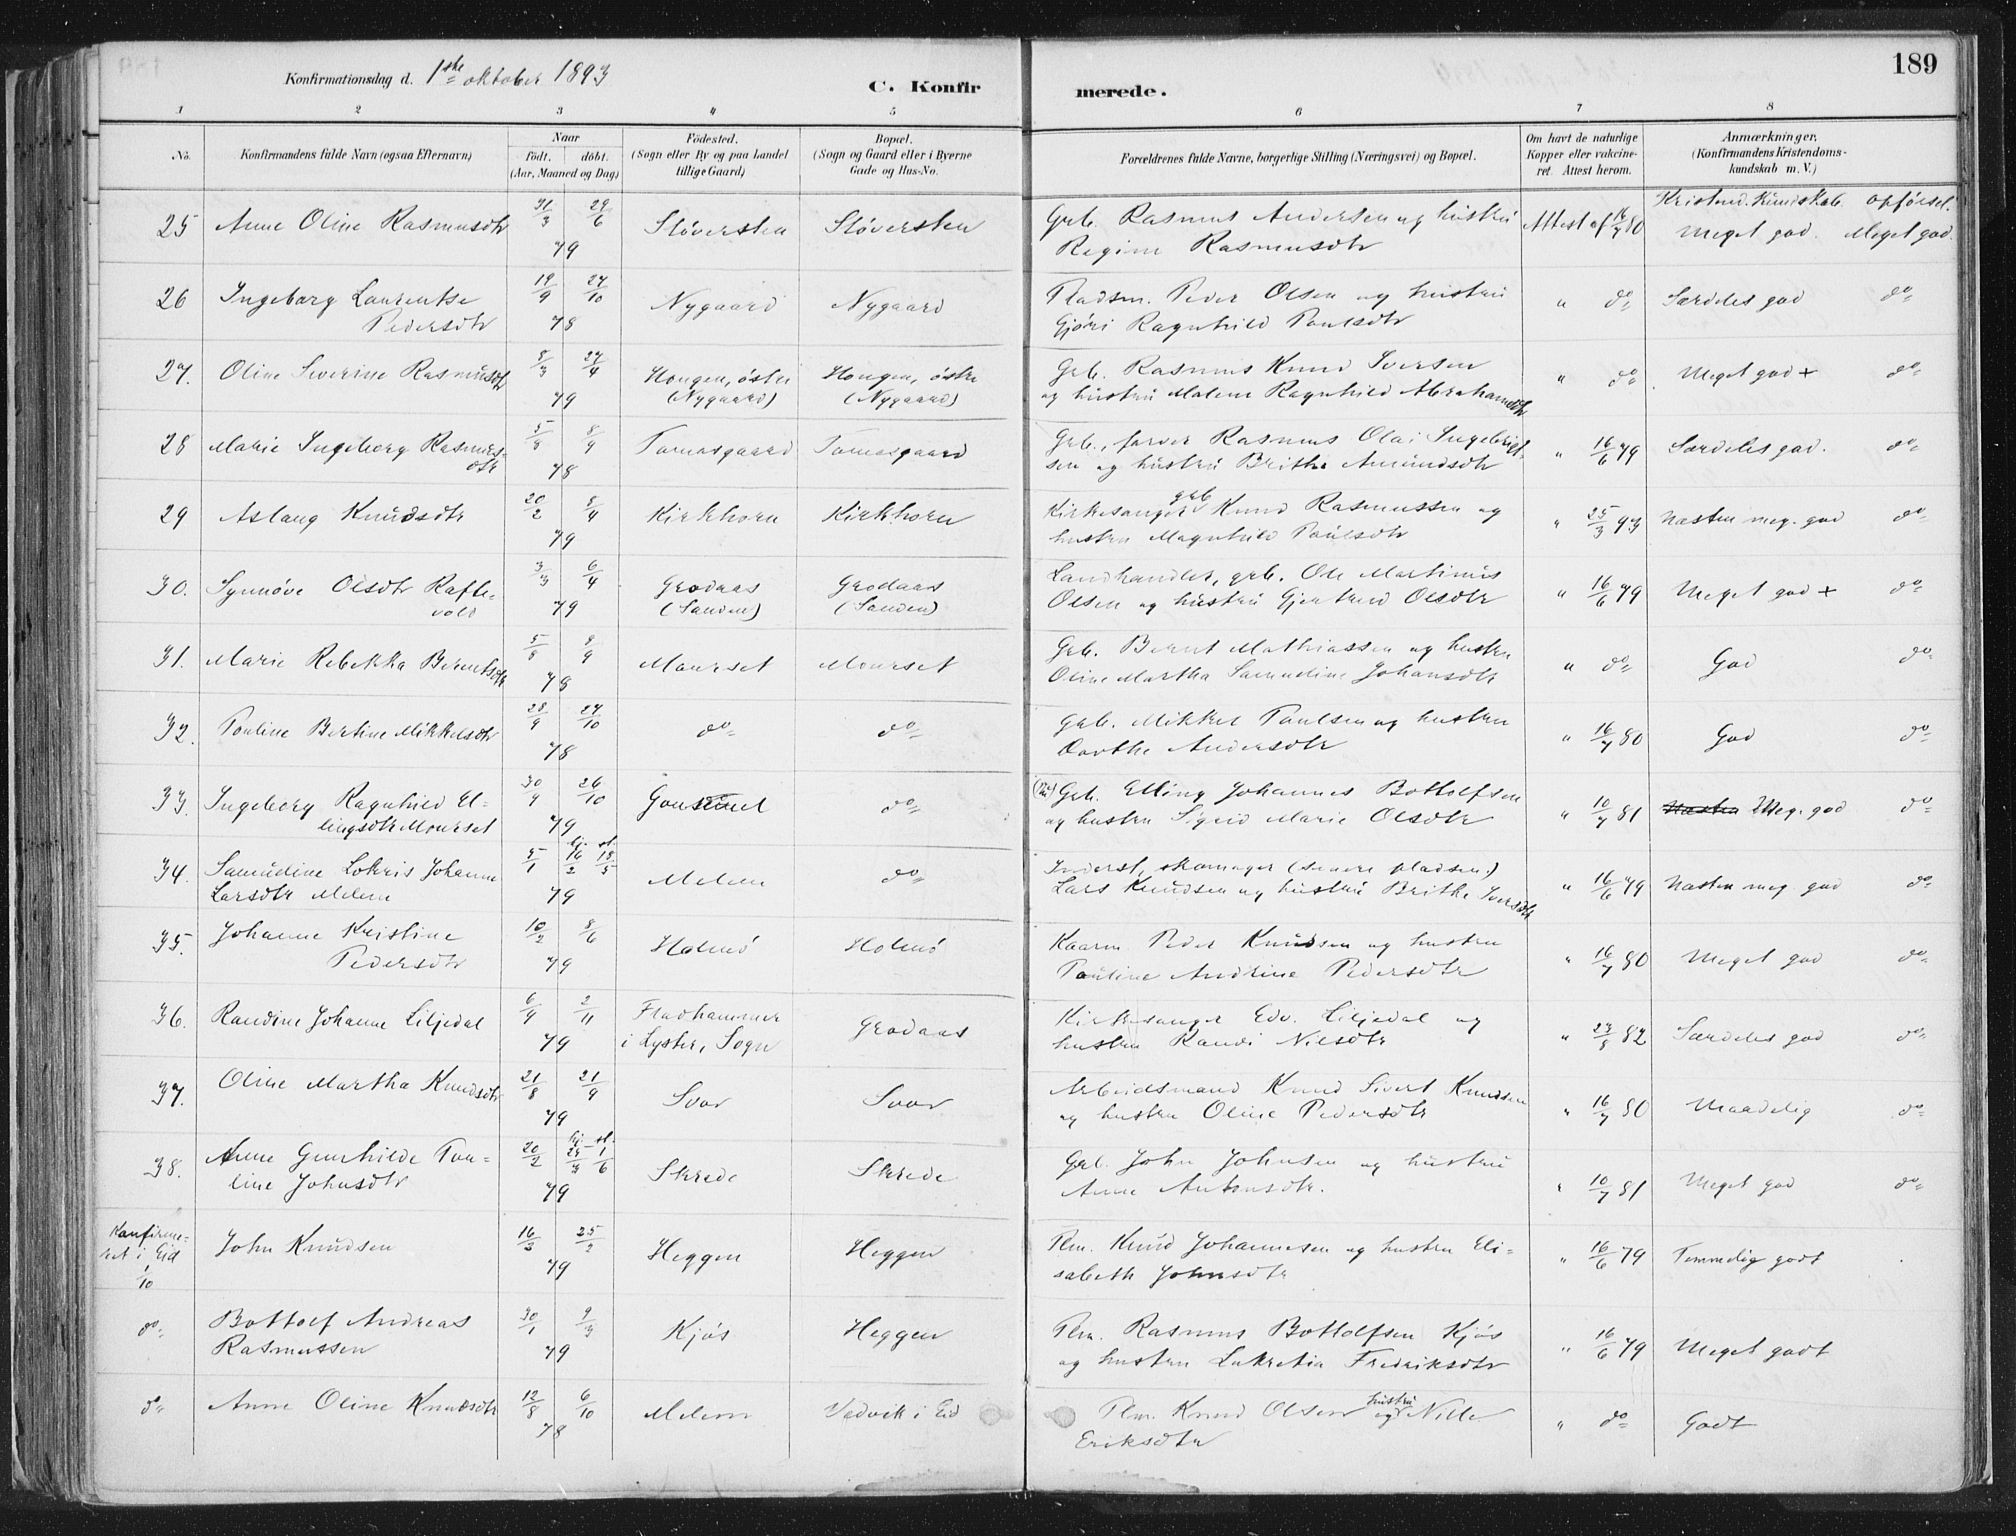 189
Konfirmationsdag d. 1ste oktober 1893
C. Konfirmerede.
1 2 3 4 5 6 7 8
No. Konfirmandens fulde Navn (ogsaa Efternavn) Naar født. døbt. (Aar, Maaned og Dag) Fødested. (Sogn eller By og paa Landet tillige Gaard) Bopæl. (Sogn og Gaard eller i Byerne Gade og Hus-No. Forældrenes fulde Navne, borgerlige Stilling (Næringsvei) og Bopæl. Om havt de naturlige Kopper eller vakcineret. Attest herom. Anmærkninger. (Konfirmandens Kristendomskundskab m. V.)
Kristend. Kundskab. Opførsel.
25 Anne Oline Rasmusdtr 31/3 29/6 79 Støversten Støversten Grb. Rasmus Andersen og hustru Regine Rasmusdtr Attest af 16/7 80 Meget god. Meget god.
26 Ingeborg Laurentse Pedersdtr 19/9 27/10 78 Nygaard Nygaard Pladsm. Peder Olsen og hustru Gjøri Ragnhild Paulsdtr " do Særdeles god do
27. Oline Severine Rasmusdtr 8/3 27/4 79 Hougen, østre (Nygaard) Hougen, østre (Nygaard) Grb. Rasmus Knud Iversen og hustru Malene Ragnhild Abrahamsdtr " do Meget god + do
28 Marie Ingeborg Rasmusdtr 5/8 8/9 78 Tomasgaard Tomasgaard Grb., farver Rasmus Olai Ingebrigtsen og hustru Brithe Amundsdtr " 16/6 79 Særdeles god. do
29 Aslaug Knudsdtr 20/2 8/4 79 Kirkhorn Kirkhorn Kirkesanger grb Knud Rasmussen og hustru Magnhild Paulsdtr " 25/3 93 Næsten meg. god do
30. Synnøve Olsdtr Raftevold 3/3 6/4 79 Grodaas (Sanden) Grodaas (Sanden) Landhandler, grb. Ole Martinus Olsen og hustru Gjertrud Olsdtr " 16/6 79 Meget god + do
31. Marie Rebekka Berentsdtr 5/8 8/9 78 Mourset Mourset Grb. Bernt Mathiassen og hustru Oline Martha Samudine Johansdtr " do God do
32. Pauline Bertine Mikkelsdtr 28/9 27/10 78 do do Grb. Mikkel Paulsen og hustru Dorthe Andersdtr " 16/7 80 God do
33. Ingeborg Ragnhild Ellingsdtr Mourset 30/9 26/10 79 do Grb. Elling Johannes Bottolfsen og hustru Sigrid Marie Olsdtr " 10/7 81 Næsten Meg. god do
34. Samudine Lokris Johanne Larsdtr Melem 5/1 hj. 16/2 st. 18/5 79 Melem do Inderst, skomager (senere pladsm.) Lars Knudsen og hustru Brithe Iversdtr " 16/6 79 Næsten meg. god do
35. Johanne Kristine Pedersdtr 10/2 8/6 79 Holmø Holmø Kaarm. Peder Knudsen og hustru Pauline Andrine Pedersdtr " 16/7 80 Meget god do
36. Randine Johanne Liljedal 6/9 2/11 79 Fladhammer i Lyster, Sogn Grodaas Kirkesanger Edv. Liljedal og hustru Randi Nilsdtr " 23/8 82 Særdeles god do
37. Oline Martha Knudsdtr 21/8 21/9 79 Svor Svor Arbeidsmand Knud Sivert Knudsen og hustru Oline Pedersdtr " 16/7 80 Maadelig do
38. Anne Gunhilde Pauline Johnsdtr 20/2 hj. 23/3 st. 1/6 79 Skrede Skrede Grb. John Johnsen og hustru Anne Antonsdtr. " 10/7 81 Meget god do
Konfirmeret i Eid 1/10 John Knudsen 16/2 25/2 79 Heggen Heggen Plm. Knud Johannesen og hustru Elisabeth Johnsdtr " 16/6 79 Temmelig godt
do Bottolf Andreas Rasmussen 30/1 9/3 79 Kjøs Heggen Plm. Rasmus Bottolfsen Kjøs og hustru Lukretia Fredriksdtr " 16/6 79 Meget godt
do Anne Oline Knudsdtr 12/8 6/10 78 Melem Vedvik i Eid Plm. Knud Olsen og hustru Nille Eriksdtr " do Godt